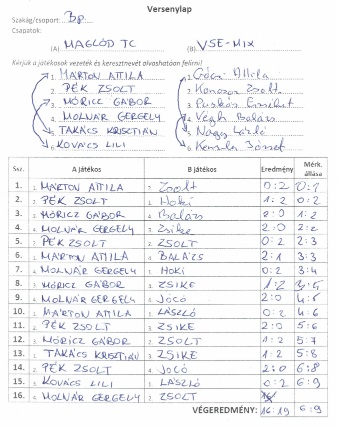 Versenylap
Szakág/csoport: B8.
Csapatok:
(A) MAGLÓD TC (B) VSE-MIX
Kérjük a játékosok vezeték és keresztnevét olvashatóan felírni)
1. MÁRTON ATTILA 1. Attila
2. PÉK ZSOLT 2. Zsolt
3. MÓRICZ GÁBOR 3. Puskás Erzsébet
4. MOLNÁR GERGELY 4. Végh Balázs
5. TAKÁCS KRISZTIÁN 5. Nagy László
6. KOVÁCS LILI 6. József
Ssz. A játékos B játékos Eredmény Mérk. állása
1. 1. MÁRTON ATTILA 2. Zsolt 0:2 0:1
2. 2. PÉK ZSOLT 1. Hoki 1:2 0:2
3. 3. MÓRICZ GÁBOR 4. Balázs 2:0 1:2
4. 4. MOLNÁR GERGELY 3. Zsike 2:0 2:2
5. 2. PÉK ZSOLT 2. ZSOLT 0:2 2:3
6. 1. MÁRTON ATTILA 4. BALÁZS 2:1 3:3
7. 4. MOLNÁR GERGELY 1. HOKI 0:2 3:4
8. 3. MÓRICZ GÁBOR 3. ZSIKE 1:2 3:5
9. 4. MOLNÁR GERGELY 4. JOCÓ 2:0 4:5
10. 1. MÁRTON ATTILA 1. LÁSZLÓ 0:2 4:6
11. 2. PÉK ZSOLT 3. ZSIKE 2:0 5:6
12. 3. MÓRICZ GÁBOR 2. ZSOLT 1:2 5:7
13. 1. TAKÁCS KRISZTIÁN 3. ZSIKE 1:2 5:8
14. 2. PÉK ZSOLT 4. JOCÓ 2:0 6:8
15. 3. KOVÁCS LILI 1. LÁSZLÓ 0:2 6:9
16. 4. MOLNÁR GERGELY 2. ZSOLT
VÉGEREDMÉNY: 16:19 6:9